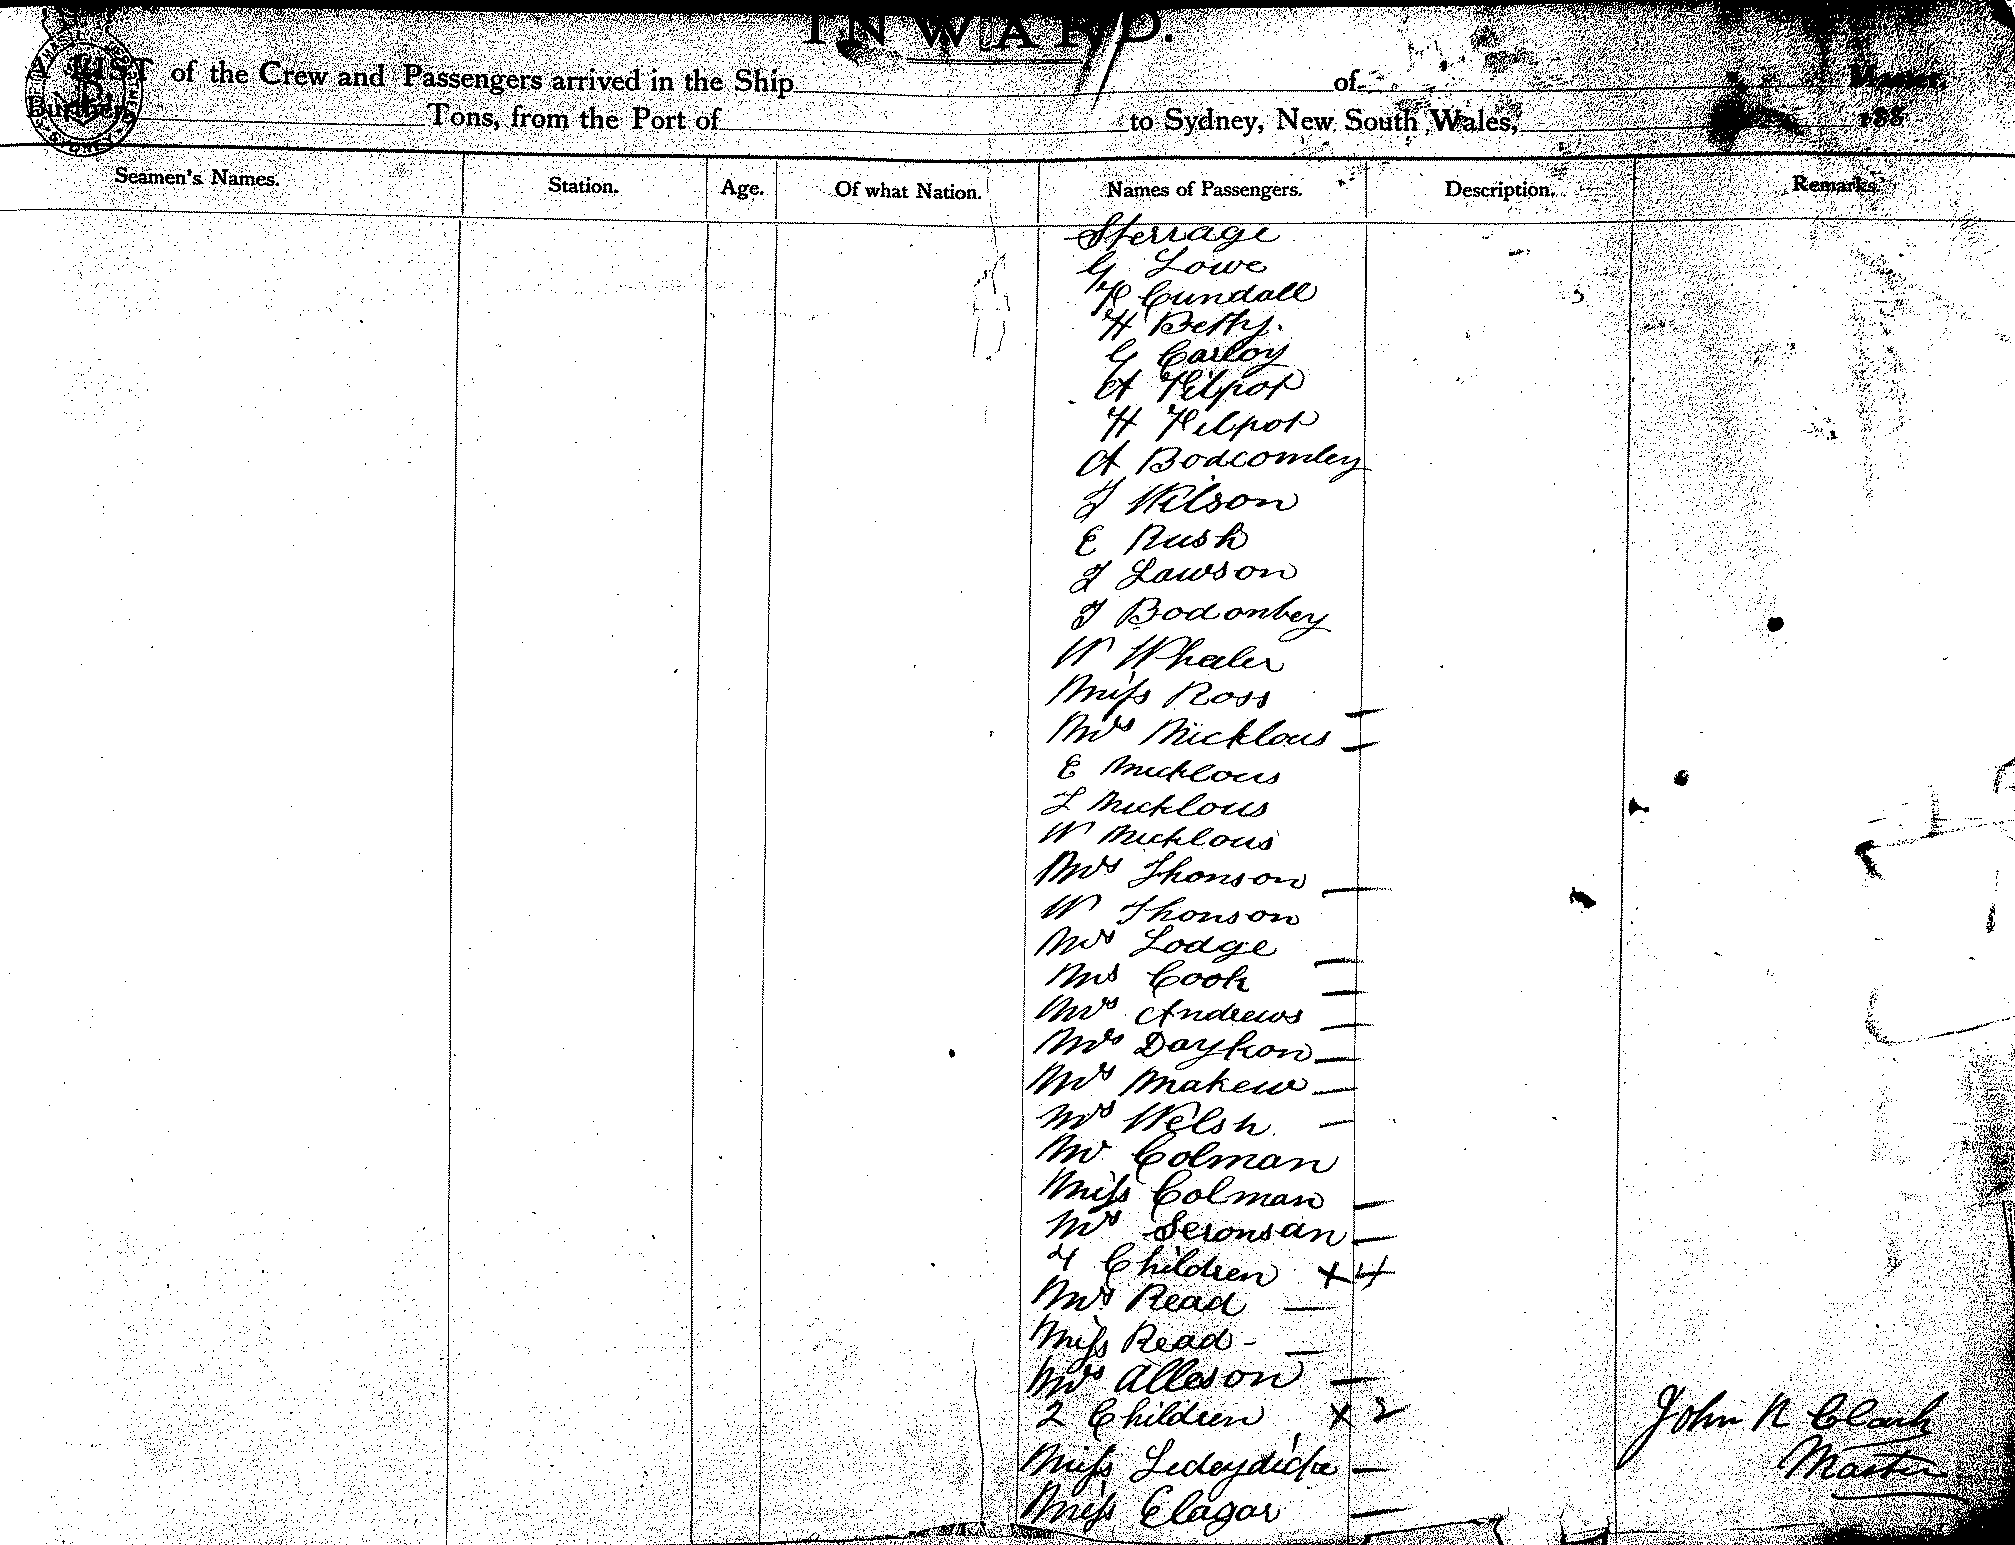 INWARD.
A LIST of the Crew and Passengers arrived in the Ship of Master,
Burthen Tons, from the Port of to Sydney, New South Wales, 188
Seamen's Names. Station. Age. Of what Nation. Names of Passengers. Description. Remarks.
Sterrage
G Lowe
H Cundall
H Betty.
G Carloy
A Kilpot
H Kilpot
A Bodcomley
J Wilson
E Rush
J Lawson
J Bodombey
W Whaler
Miss Ross
Mrs Micklous
E Micklous
L Micklous
W Micklous
Mrs Thonson
W Thonson
Mrs Lodge
Mrs Cook
Mrs Andrews
Mrs Daykon
Mrs Makew
Mrs Welsh
Mr Colman
Miss Colman
Mrs Seronsan
4 Children x4
Mrs Read
Miss Read -
Mrs Alleson
2 Children x 2
Miss
Miss Elagar
John R Clark
Master